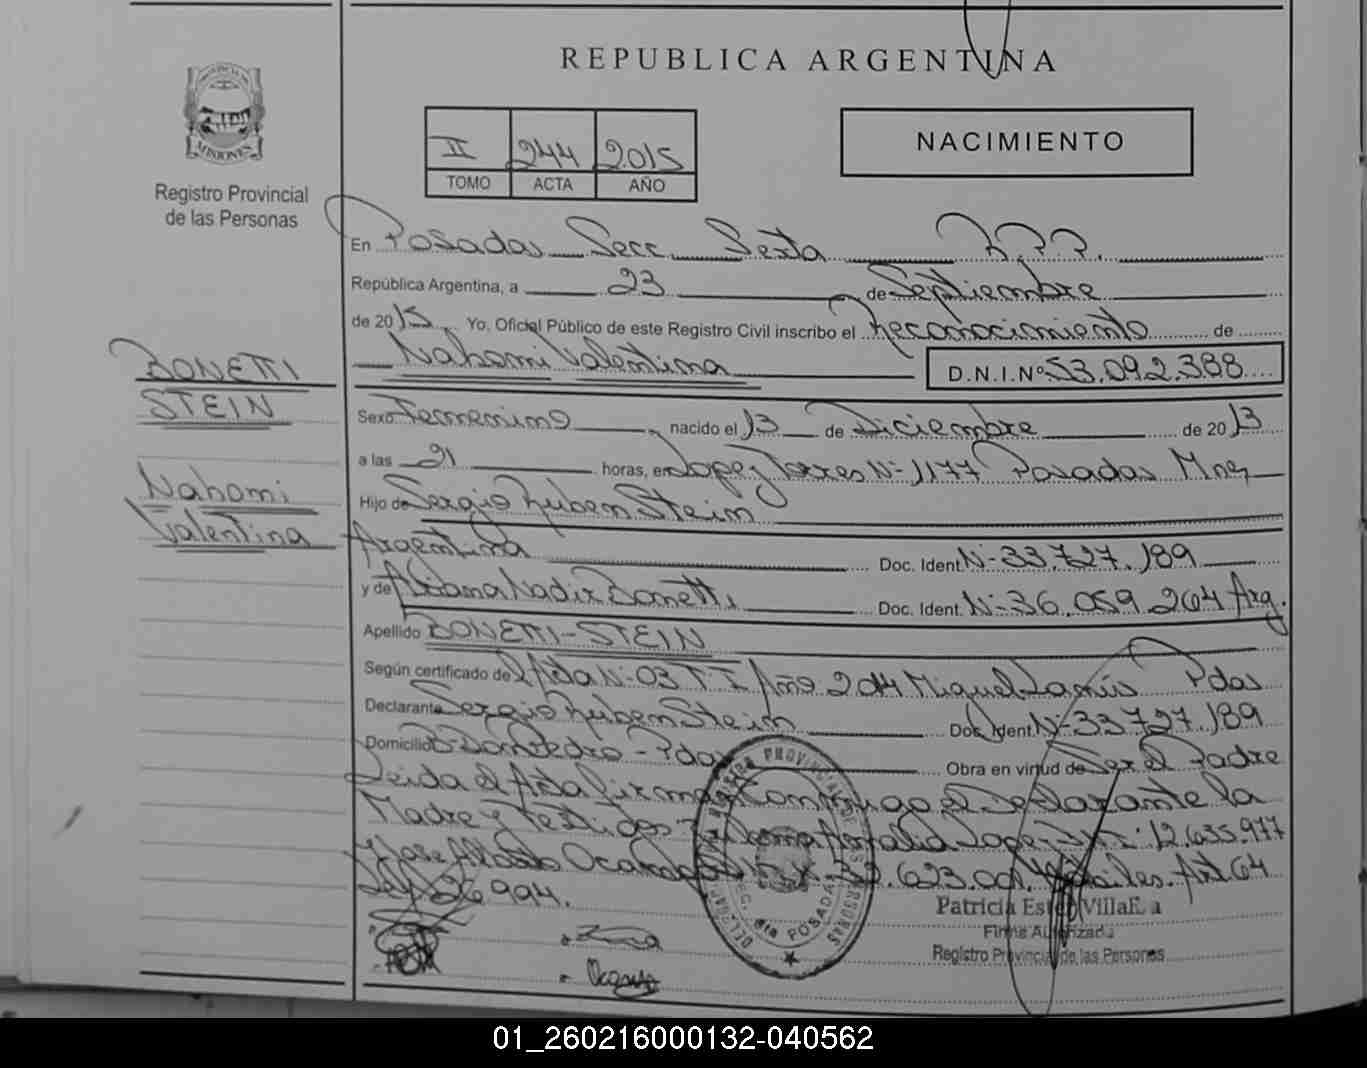 REPUBLICA ARGENTINA
PROVINCIA DE
MISIONES
Registro Provincial
de las Personas
II 244 2015
TOMO ACTA AÑO
NACIMIENTO
En Posadas Secc Sexta R.P.P.
República Argentina, a 23 de Septiembre
de 2015. Yo, Oficial Público de este Registro Civil inscribo el Reconocimiento de
Nahomi Valentina D.N.I.Nº 53.092.388
BONETTI
STEIN
Nahomi
Valentina
Sexo Femenino nacido el 13 de Diciembre de 2013
a las 21 horas, en Lopez Torres Nº 1177 Posadas Mnes
Hijo de Sergio Ruben Stein
Argentina Doc. Ident. Nº 33.727.189
y de Nadir Bonetti Doc. Ident. Nº 36.059.264 Arg.
Apellido BONETTI-STEIN
Según certificado de el Acta Nº 03 T I Año 2014 Miguel Lanús Pdas
Declarante Sergio Ruben Stein Doc. Ident. Nº 33.727.189
Domicilio Bº Don Pedro - Pdas Obra en virtud de Ser el Padre
Leida el Acta firman Conmigo el Declarante la
Madre y Testigos Amalia Lopez 12.635.977
y Jose Alberto Ocampo Art 64
Ley 26.994.
Patricia Ester
Firma Autorizada
Registro Provincial de las Personas
01_260216000132-040562